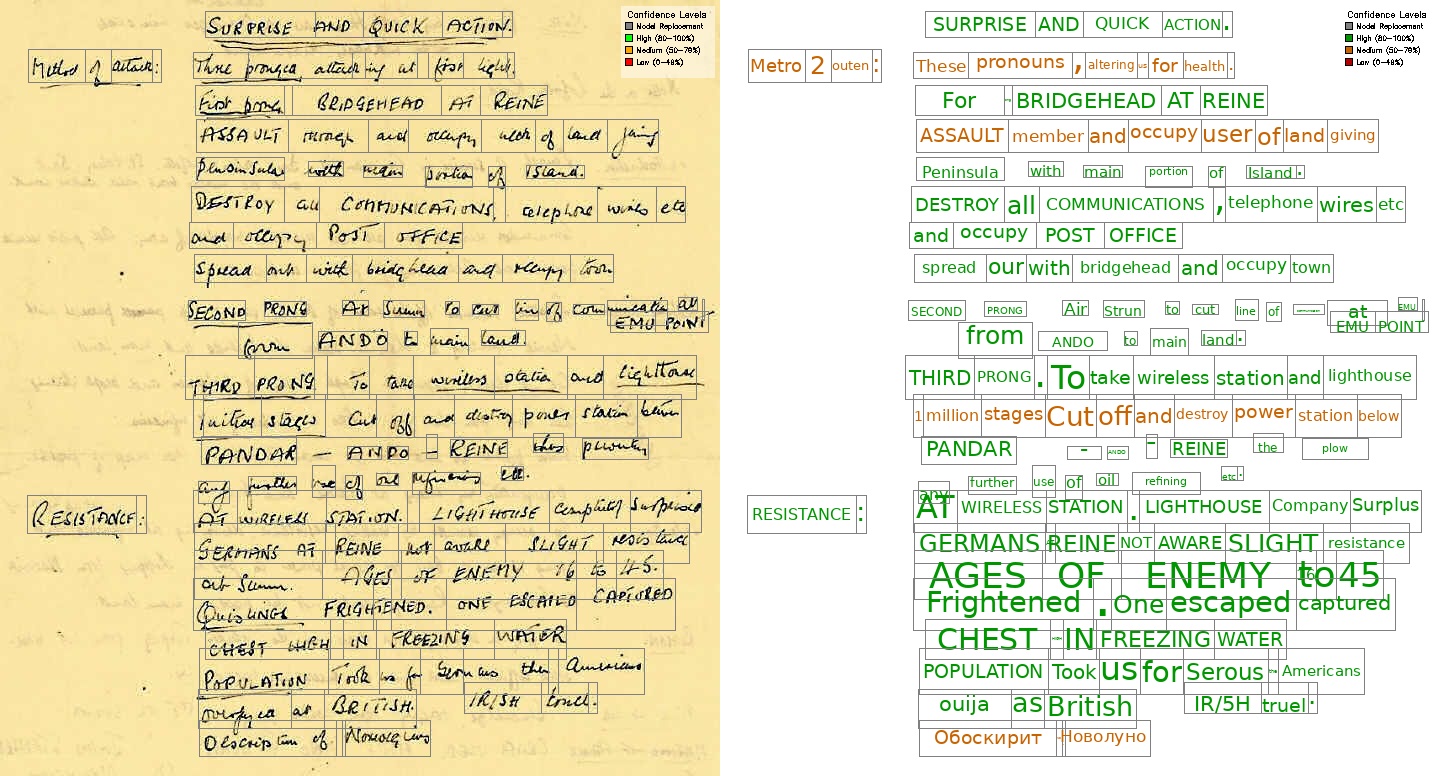 SURPRISE AND QUICK ACTION.
Method of attack:
Three pronged attacking at first light.
First prong BRIDGEHEAD AT REINE
ASSAULT through and occupy neck of land joining
peninsular with main portion of Island.
DESTROY all COMMUNICATIONS, telephone wires etc
and occupy POST OFFICE
Spread out with bridgehead and occupy town
SECOND PRONG At Sumn To cut line of communication at
EMU POINT
from ANDO to main land.
THIRD PRONG To take wireless station and lighthouse
Initial stages Cut off and destroy power station between
PANDAR — ANDO — REINE thus preventing
any further use of oil refineries etc.
RESISTANCE:
AT WIRELESS STATION. LIGHTHOUSE completely surprised
GERMANS AT REINE not aware SLIGHT resistance
at Sumn. AGES OF ENEMY 16 to 45.
QUISLINGS FRIGHTENED. ONE ESCAPED CAPTURED
CHEST HIGH IN FREEZING WATER
POPULATION Took us for Germans then Americans
overjoyed at BRITISH. IR/SH
Description of Norwegians
Confidence Levels
Model Replacement
High (80-100%)
Medium (50-79%)
Low (0-49%)
SURPRISE AND QUICK ACTION.
Metro 2 outen :
These pronouns , altering us for health .
For BRIDGEHEAD AT REINE
ASSAULT member and occupy user of land giving
Peninsula with main portion of Island .
DESTROY all COMMUNICATIONS , telephone wires etc
and occupy POST OFFICE
spread our with bridgehead and occupy town
SECOND PRONG Air Strun to cut line of at EMU
EMU POINT
from ANDO to main land .
THIRD PRONG . To take wireless station and lighthouse
1 million stages Cut off and destroy power station below
PANDAR - ANDO - REINE the plow
any further use of oil refining etc .
RESISTANCE :
AT WIRELESS STATION . LIGHTHOUSE Company Surplus
GERMANS REINE NOT AWARE SLIGHT resistance
AGES OF ENEMY 16 to 45
Frightened . One escaped captured
CHEST IN FREEZING WATER
POPULATION Took us for Serous Americans
ouija as British IR/5H truel .
Обоскирит Новолуно
Confidence Levels
Model Replacement
High (80-100%)
Medium (50-79%)
Low (0-49%)